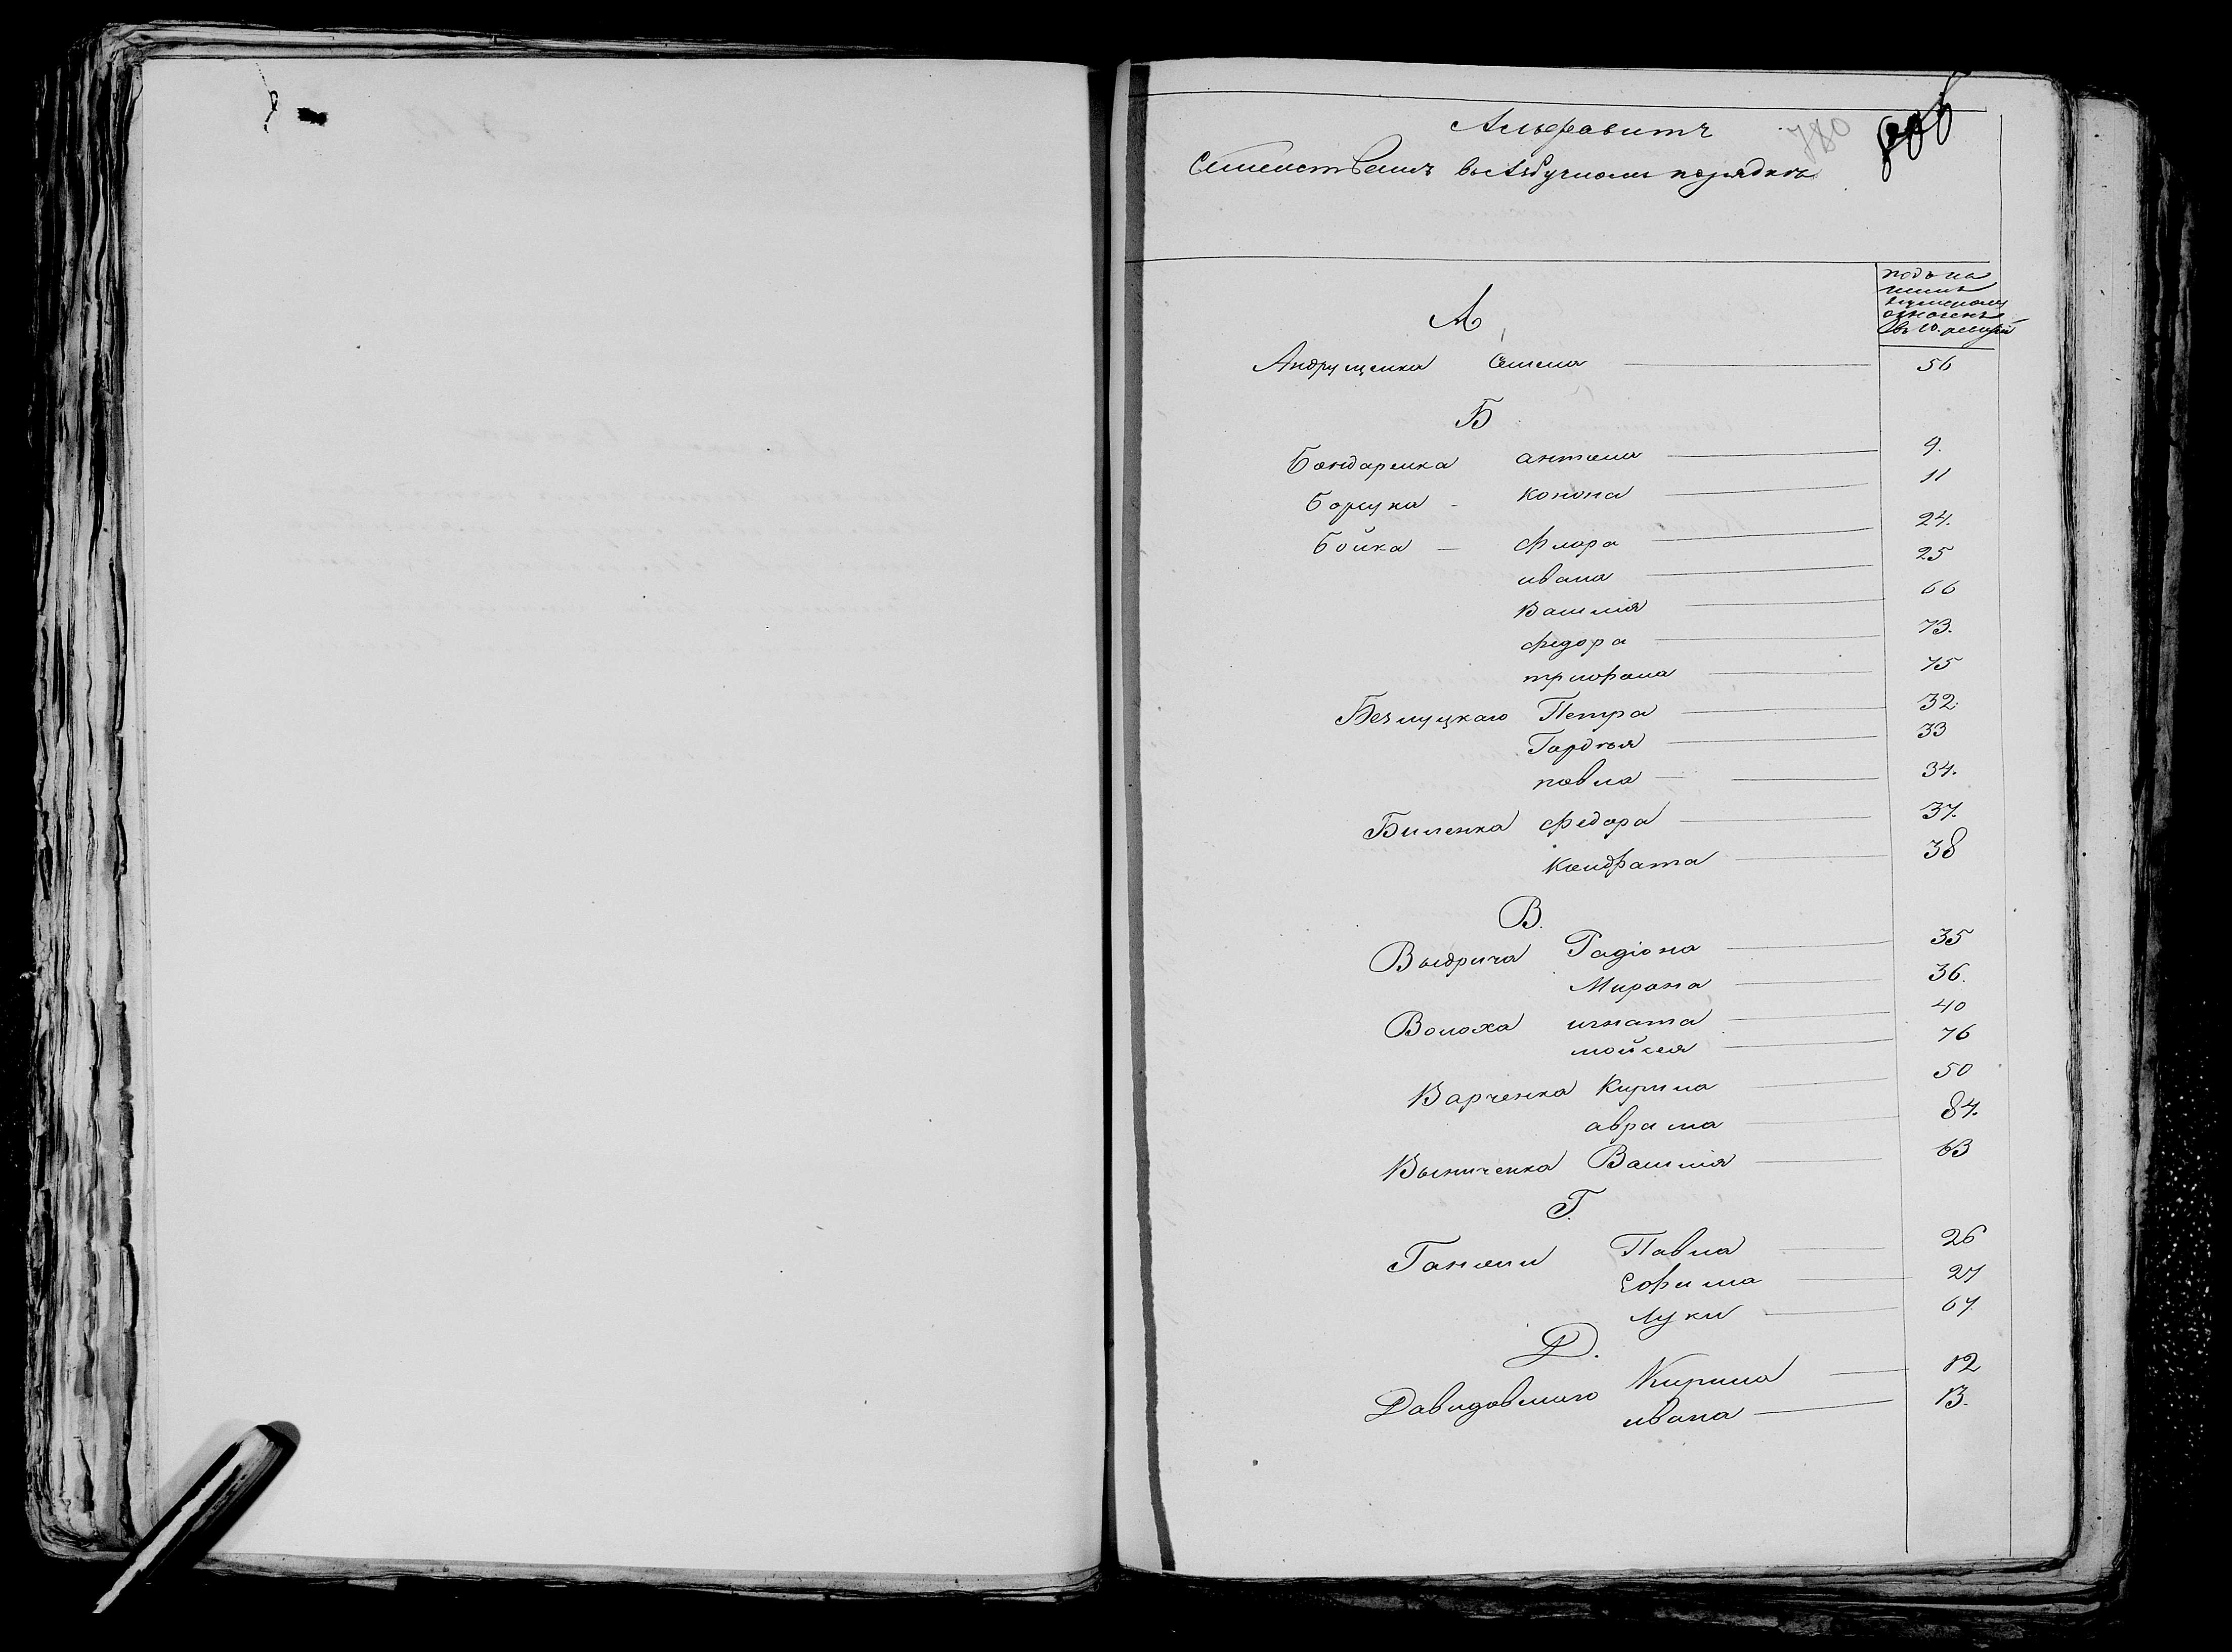 Алфавитъ 780
Семействамъ въ Азбучномъ порядкѣ
подъ ка
кимъ
нумеромъ
означены
въ 10. ревизіи
А
Андрущенка Семена 56
Б
Бондаренка антона 9.
Борщука конона 11
Бойка флора 24.
ивана 25
Василія 66
федора 73.
трифона 75
Безлуцкаго Петра 32
Гордѣя 33
павла 34.
Биленка федора 37.
Кондрата 38
В.
Выдрича Радіона 35
Мирона 36.
Волоха игната 40
мойсея 76
Варченка Кирила 50
аврама 84.
Выниченка Василія 63
Г.
Ганжи Павла 26
Ефима 27
луки 67.
Д.
Кирила 12
ивана 13.